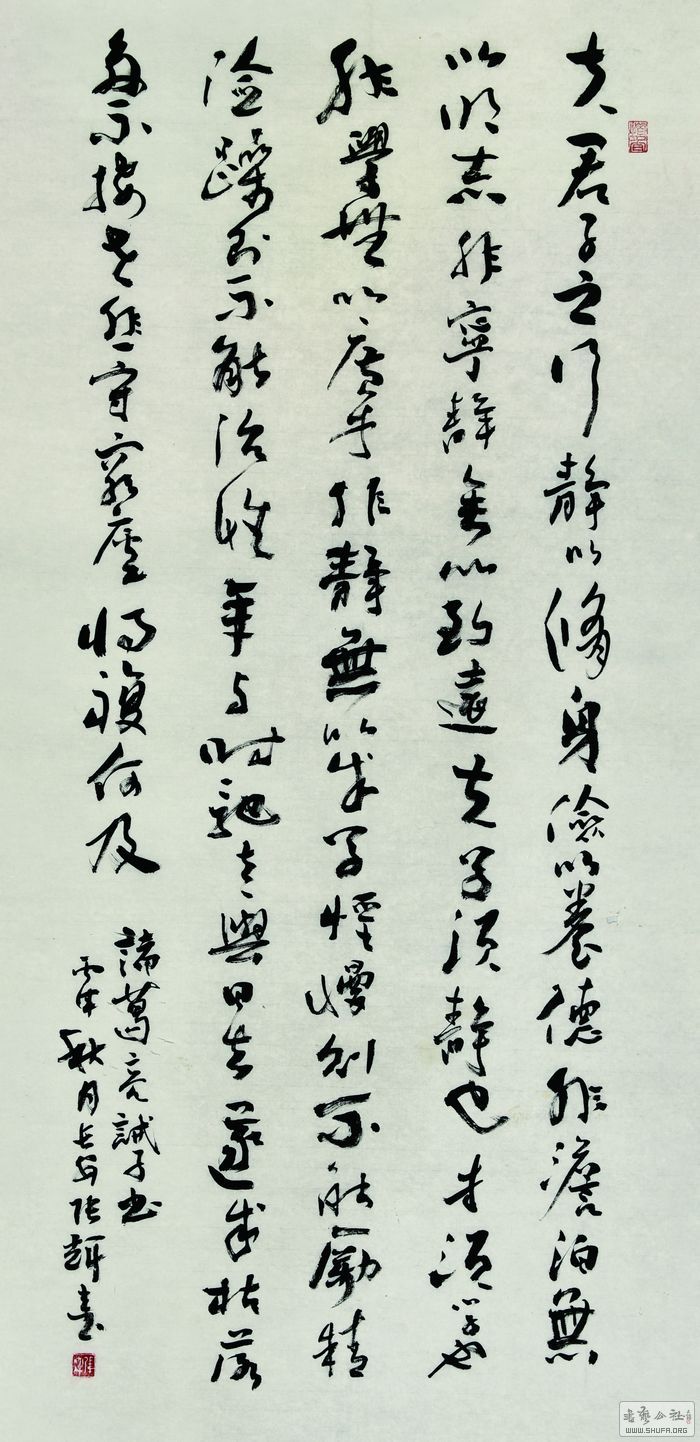 夫君子之行靜以脩身儉以養德非澹泊無
以明志非寧靜無以致遠夫学須靜也才須學也
非學無以廣才非靜無以成学慢則不能勵精
險躁則不能治性年与时馳志與日去遂成枯落
多不接世悲守窮廬将復何及
諸葛亮誡子書
秋月长安張
WWW.SHUFA.ORG